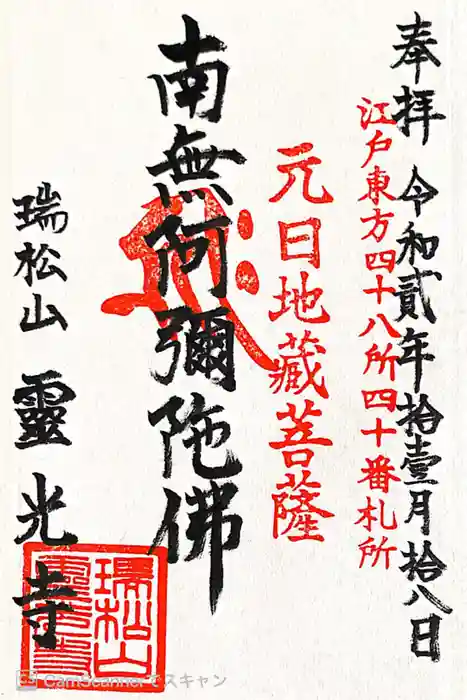 奉拝 令和貳年拾壹月拾八日
江戸東方四十八所四十番札所
元日地藏菩薩
南無阿彌陀佛
瑞松山 靈光寺
瑞松山
CamScannerでスキャン